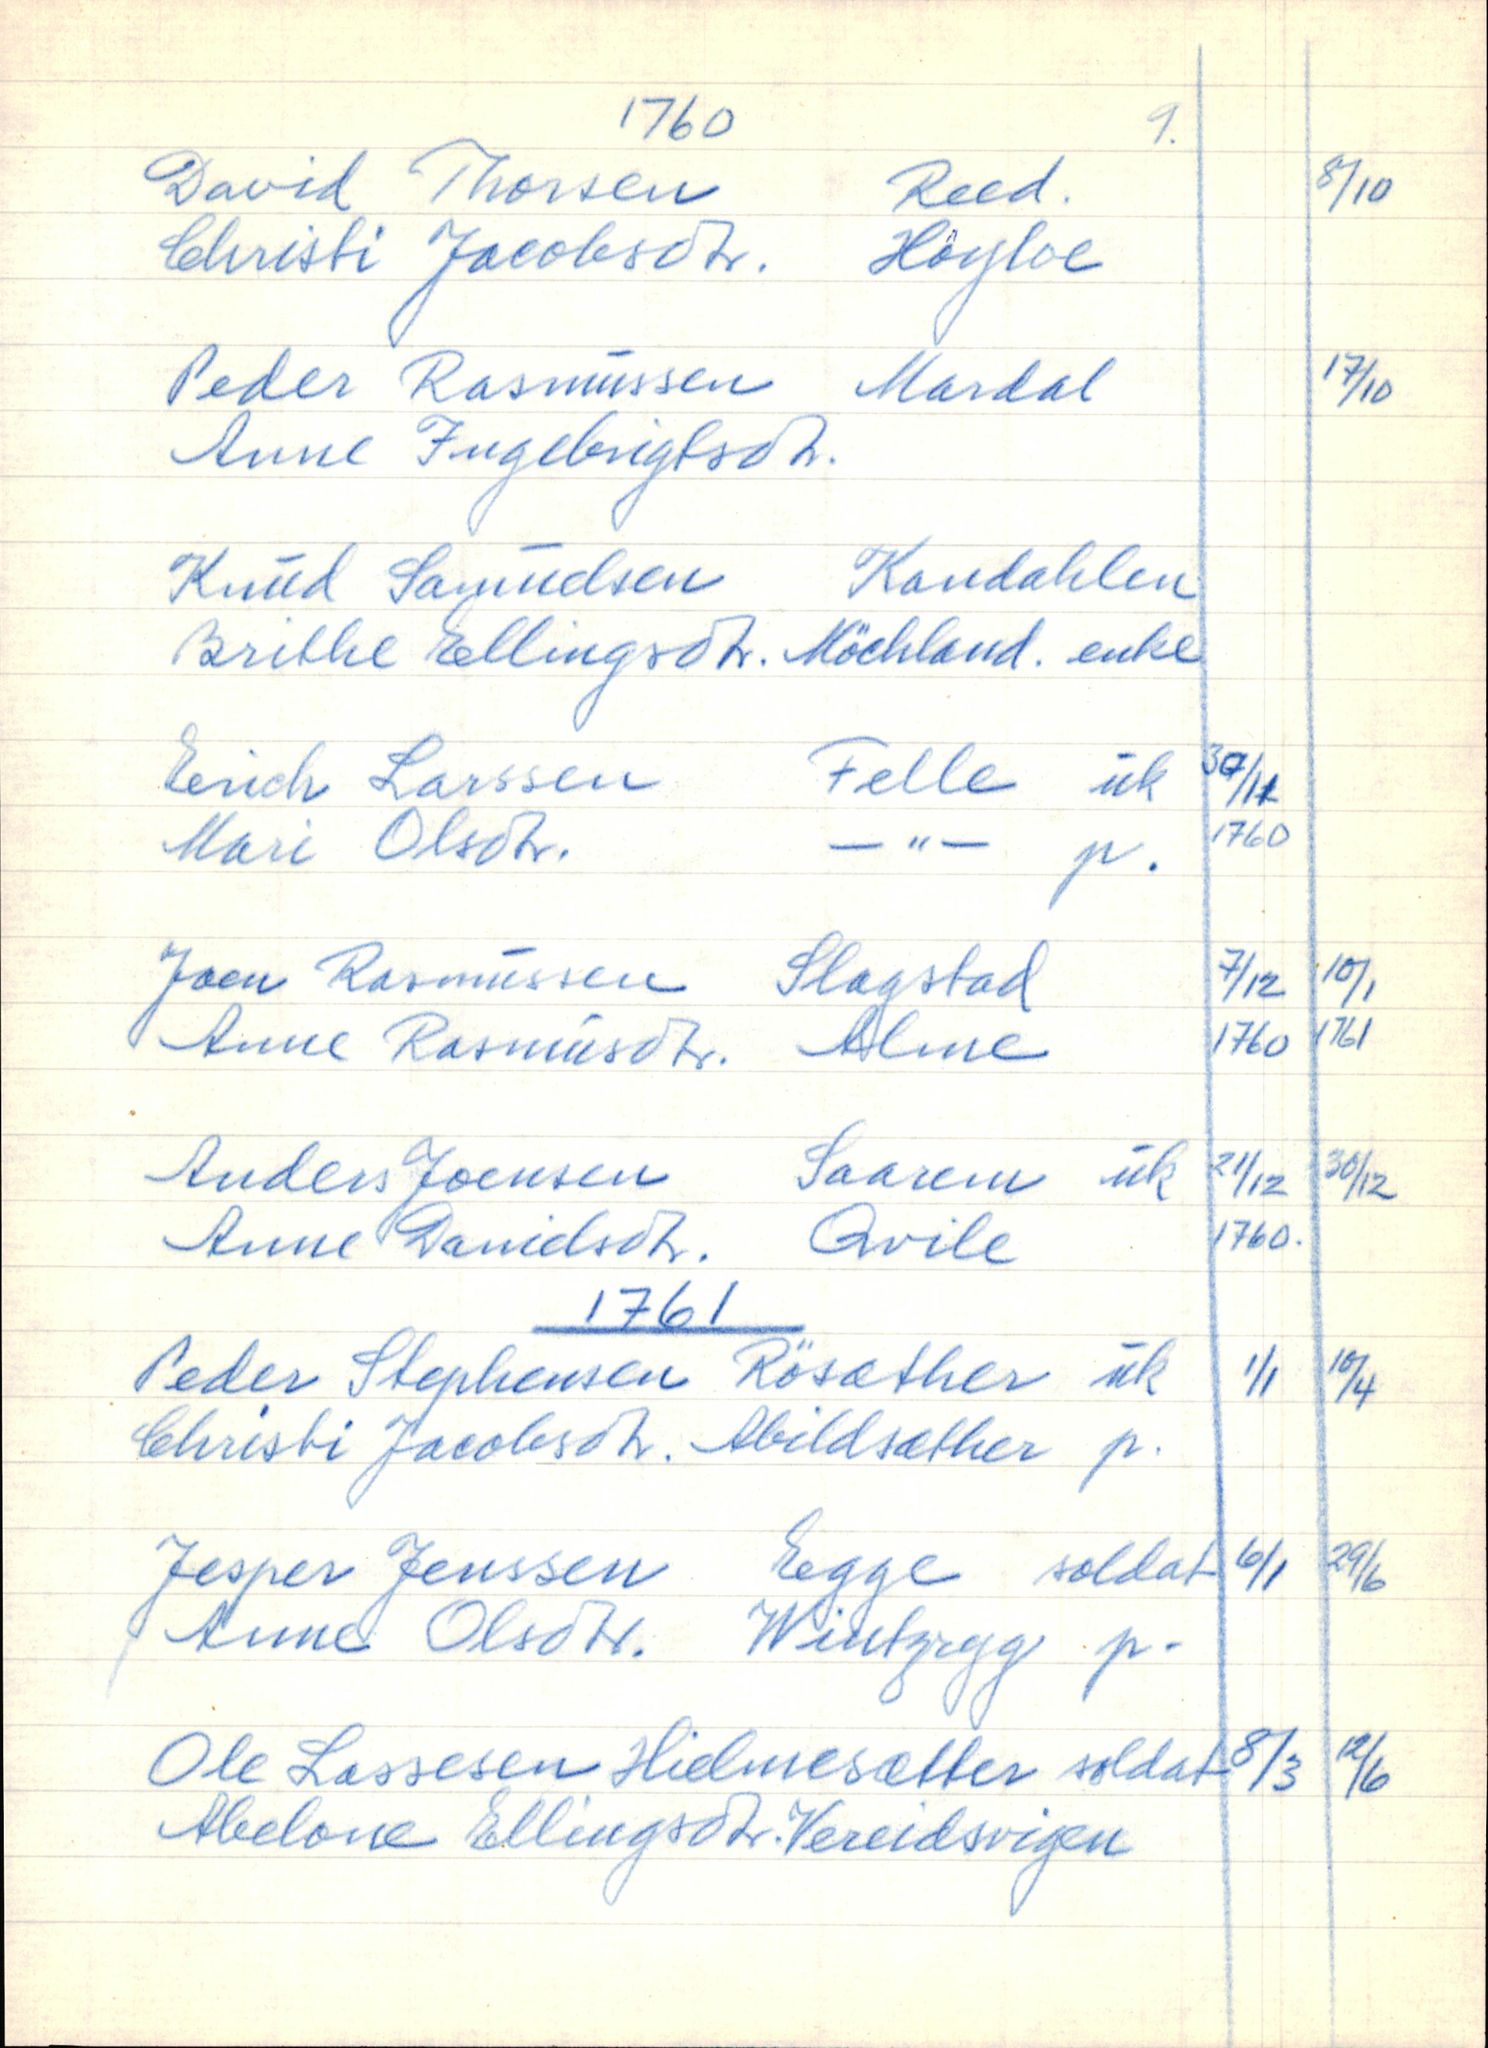 1760 9.
David Thorsen Reed. 8/10
Christi Jacobsdtr. Höyloe
Peder Rasmussen Mardal 17/10
Anne Ingebrigtsdtr.
Knud Samuelsen Kandahlen
Brithe Ellingsdtr. Möchland. enke
Erich Larssen Felle uk 30/11
Mari Olsdtr. —"— p. 1760
Joen Rasmussen Slagstad 7/12 10/1
Anne Rasmusdtr. Alme 1760 1761
Anders Joensen Saarem uk 21/12 30/12
Anne Danielsdtr. Qvile 1760.
1761
Peder Stephensen Rösæther uk 1/1 10/4
Christi Jacobsdtr. Abildsæther p.
Jesper Jenssen Egge soldat 6/1 29/6
Anne Olsdtr. Wintzrygg p.
Ole Lassesen Hielmesætter soldat 8/3 12/6
Abelone Ellingsdtr. Vereidsvigen